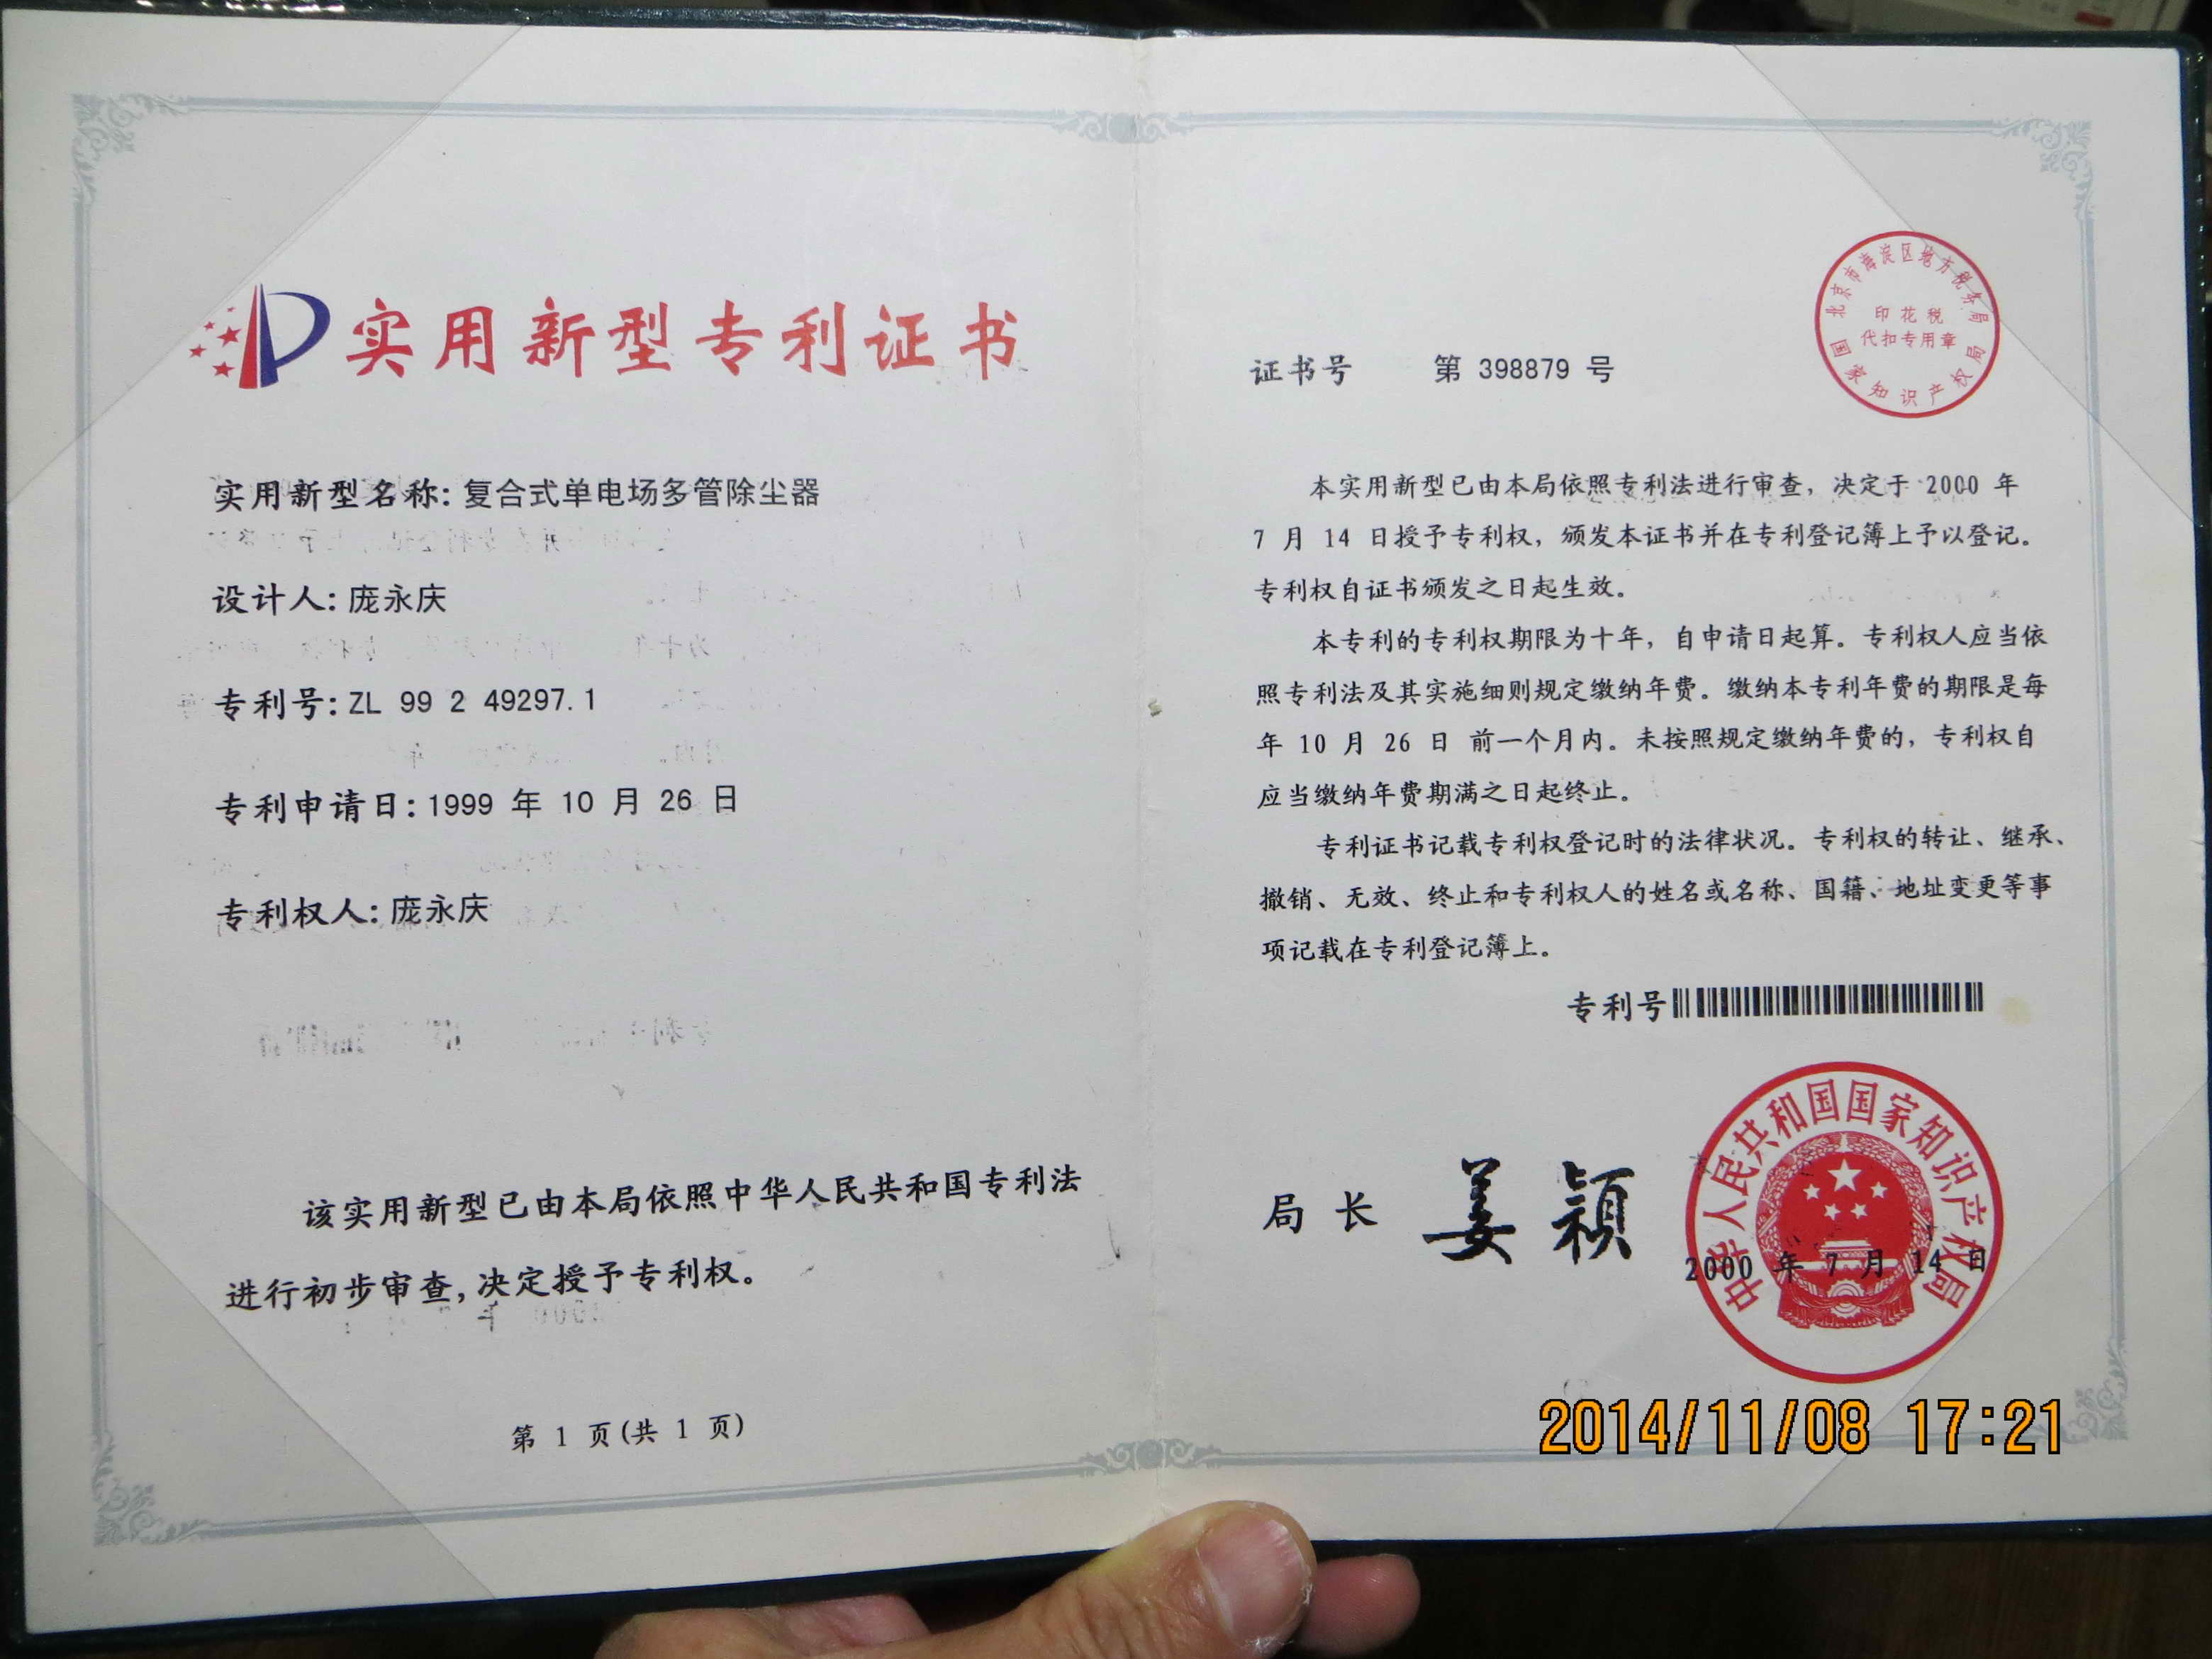 实用新型专利证书
实用新型名称:复合式单电场多管除尘器
设计人:庞永庆
专利号:ZL 99 2 49297.1
专利申请日:1999 年 10 月 26 日
专利权人:庞永庆
该实用新型已由本局依照中华人民共和国专利法
进行初步审查,决定授予专利权。
第 1 页(共 1 页)
证书号 第 398879 号
北京市海淀区地方税务局
印花税
代扣专用章
国家知识产权局
本实用新型已由本局依照专利法进行审查，决定于 2000 年
7 月 14 日授予专利权，颁发本证书并在专利登记簿上予以登记。
专利权自证书颁发之日起生效。
本专利的专利权期限为十年，自申请日起算。专利权人应当依
照专利法及其实施细则规定缴纳年费。缴纳本专利年费的期限是每
年 10 月 26 日 前一个月内。未按照规定缴纳年费的，专利权自
应当缴纳年费期满之日起终止。
专利证书记载专利权登记时的法律状况。专利权的转让、继承、
撤销、无效、终止和专利权人的姓名或名称、国籍、地址变更等事
项记载在专利登记簿上。
专利号
中华人民共和国国家知识产权局
局长 姜颖
2000 年 7 月 14 日
2014/11/08 17:21